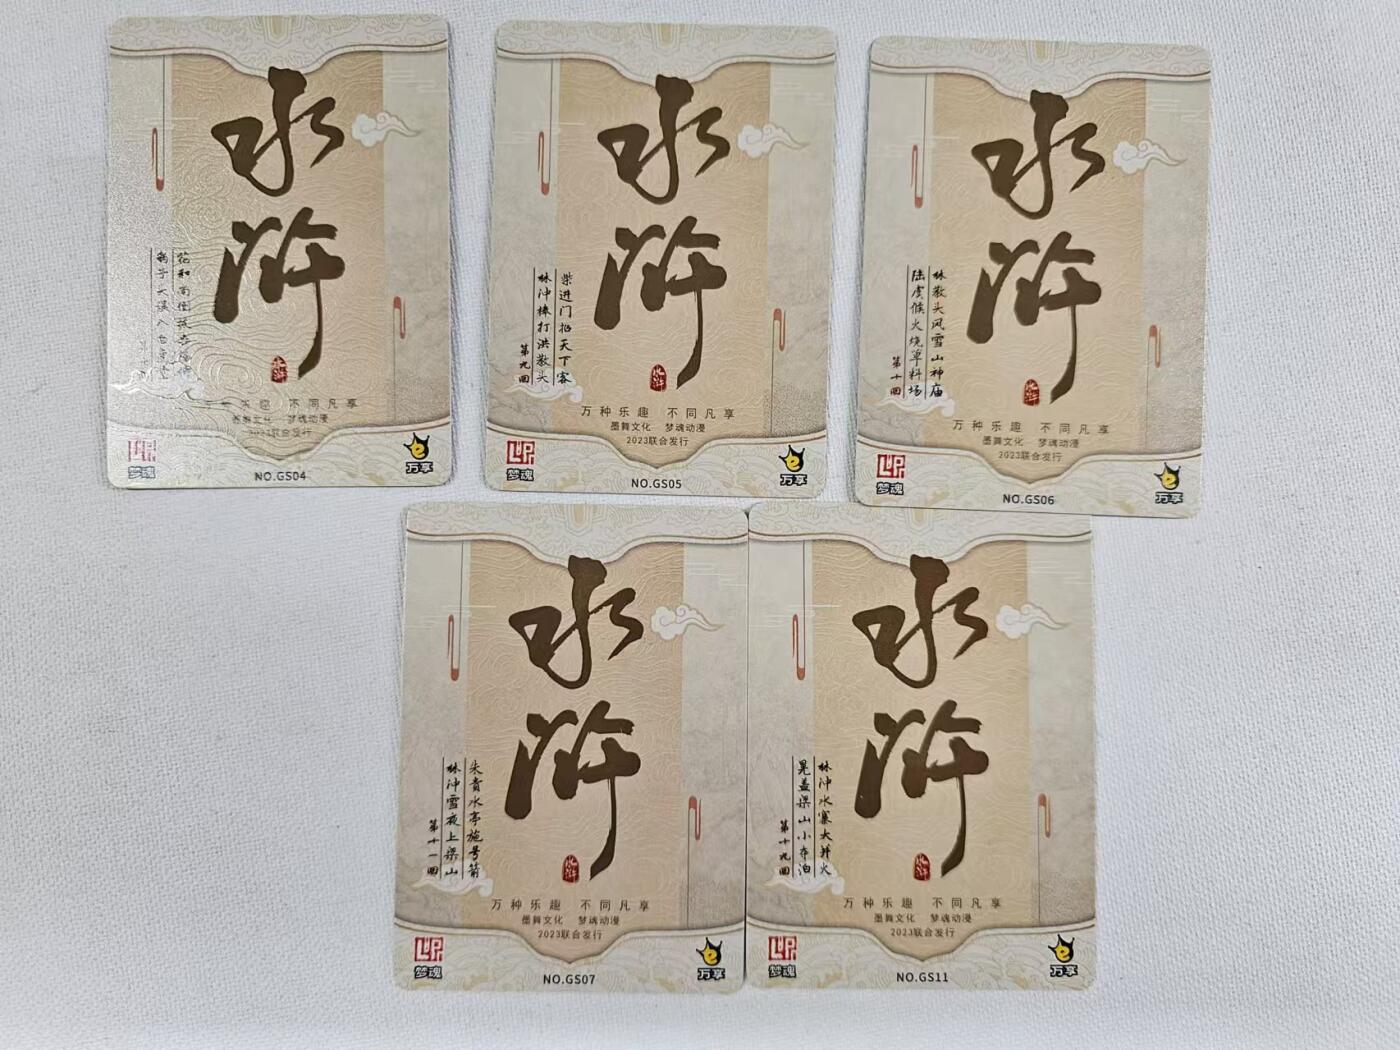 水浒
花和尚
豹子
万种乐趣 不同凡享
墨舞文化 梦魂动漫
2023联合发行
梦魂
NO.GS04
万享
水浒
柴进门招天下客
林冲棒打洪教头
第九回
水浒
万种乐趣 不同凡享
墨舞文化 梦魂动漫
2023联合发行
梦魂
NO.GS05
万享
水浒
林教头风雪山神庙
陆虞候火烧草料场
第十回
水浒
万种乐趣 不同凡享
墨舞文化 梦魂动漫
2023联合发行
梦魂
NO.GS06
万享
水浒
朱贵水亭施号箭
林冲雪夜上梁山
第十一回
水浒
万种乐趣 不同凡享
墨舞文化 梦魂动漫
2023联合发行
梦魂
NO.GS07
万享
水浒
林冲水寨大并火
晁盖梁山小夺泊
第十九回
水浒
万种乐趣 不同凡享
墨舞文化 梦魂动漫
2023联合发行
梦魂
NO.GS11
万享